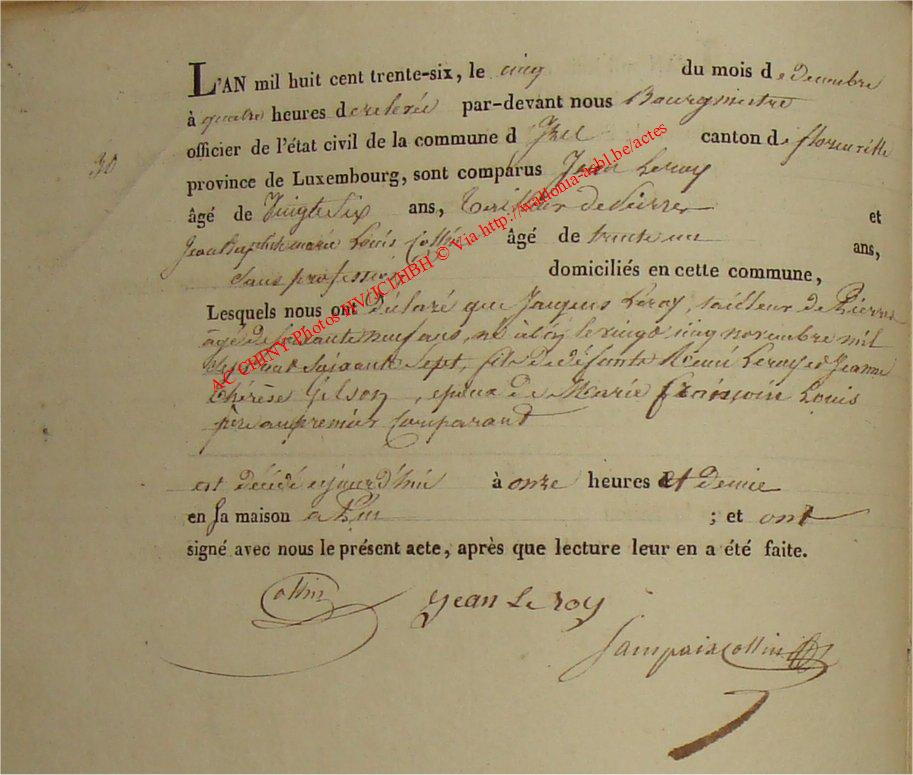 30
L'AN mil huit cent trente-six, le cinq du mois de decembre
à quatre heures de relevée par-devant nous Bourgmestre
officier de l'état civil de la commune d'Izel canton de florenville
province de Luxembourg, sont comparus Jean Leroy
âgé de Vingt Six ans, tailleur de Pierres et
Jean Baptiste marie Louis Collin âgé de trente un ans,
Sans profession domiciliés en cette commune,
Lesquels nous ont Déclaré que Jacques Leroy, tailleur de Pierres
âgé de soixante neuf ans, né à le vingt cinq novembre mil
sept cent soixante sept, fils de défunts Remi Leroy et Jeanne
thérèse Gilson, epoux de Marie françoise Louis
père au premier Comparant
est décédé aujourd'hui à onze heures et Demie
en sa maison a Pin ; et ont
signé avec nous le présent acte, après que lecture leur en a été faite.
Collin Jean Le roy
Collin
AC CHINY-Photos HV/JCI/HBH © Via http://wallonia-asbl.be/actes